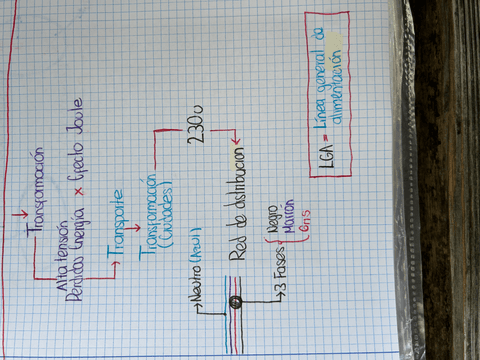 Transformación
Alta tensión
Perdidas energía x Efecto Joule
Transporte
Transformación
(Ciudades)
230v
Red de distribución
Neutro (Azul)
3 Fases
Negro
Marrón
Gris
LGA = Línea general de
alimentación